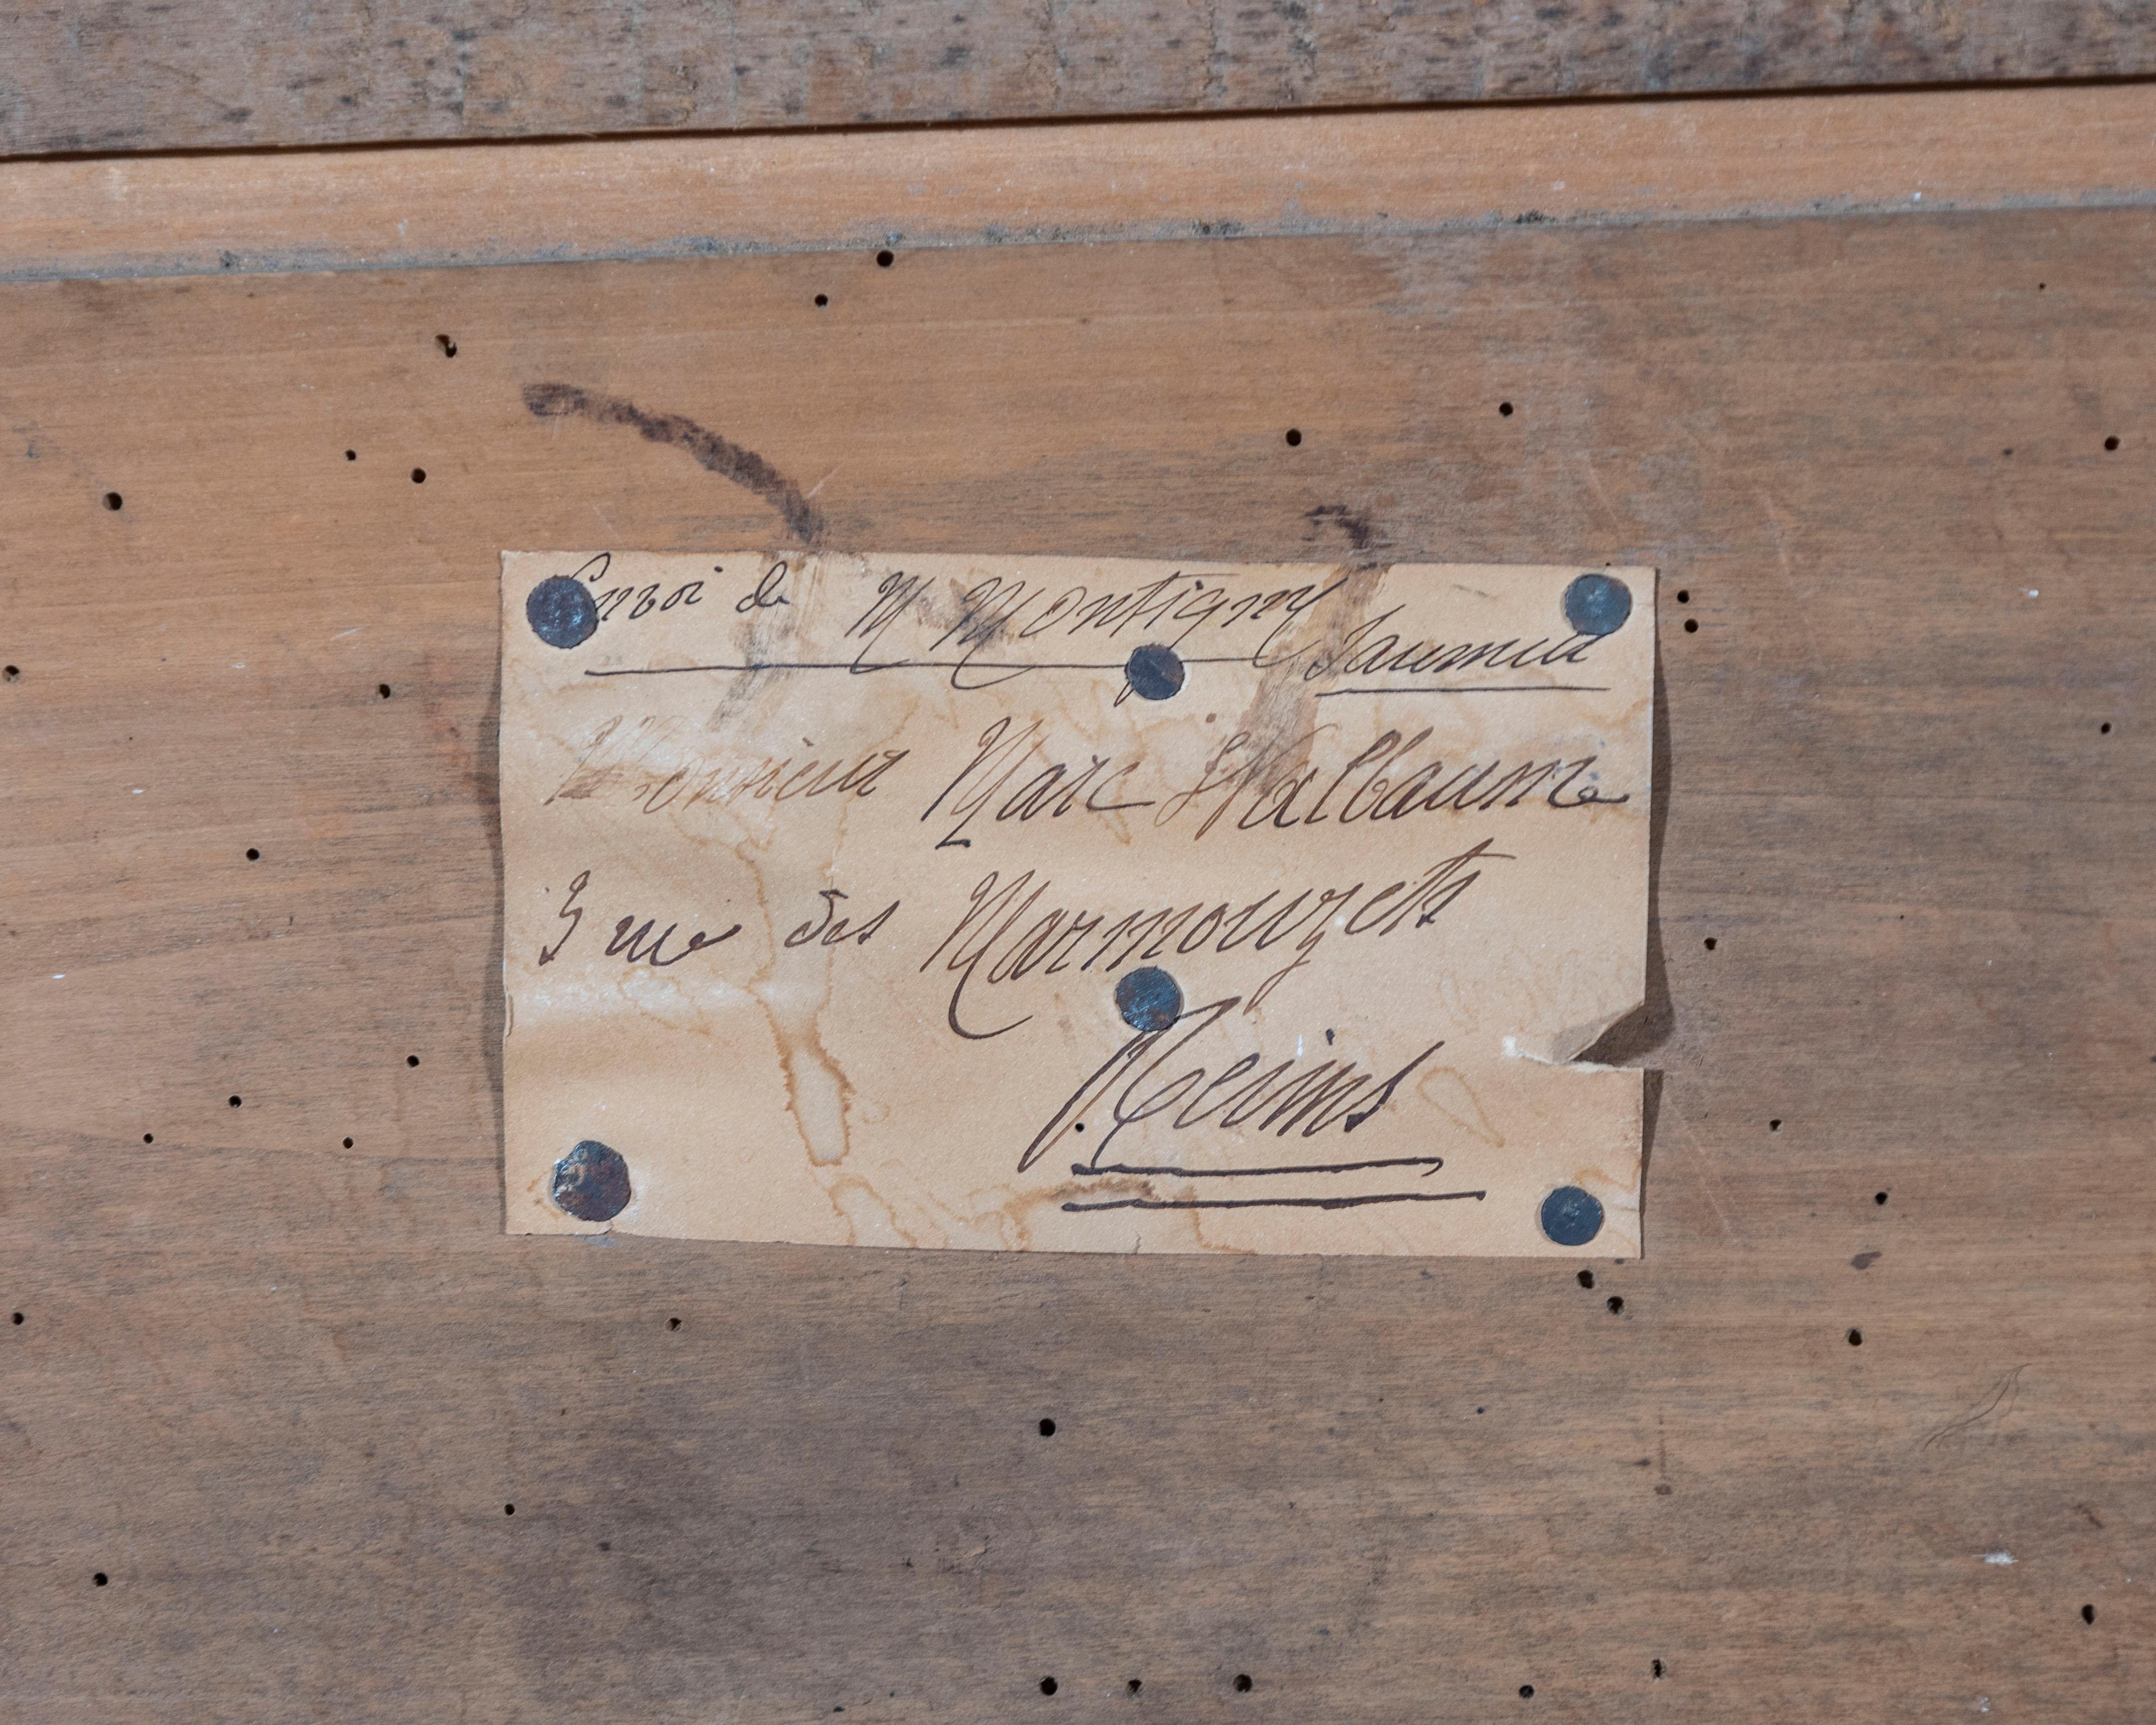 Envoi de M Montigny Saumur
Monsieur Marc Walbaume
3 rue des Marmouzets
Reims